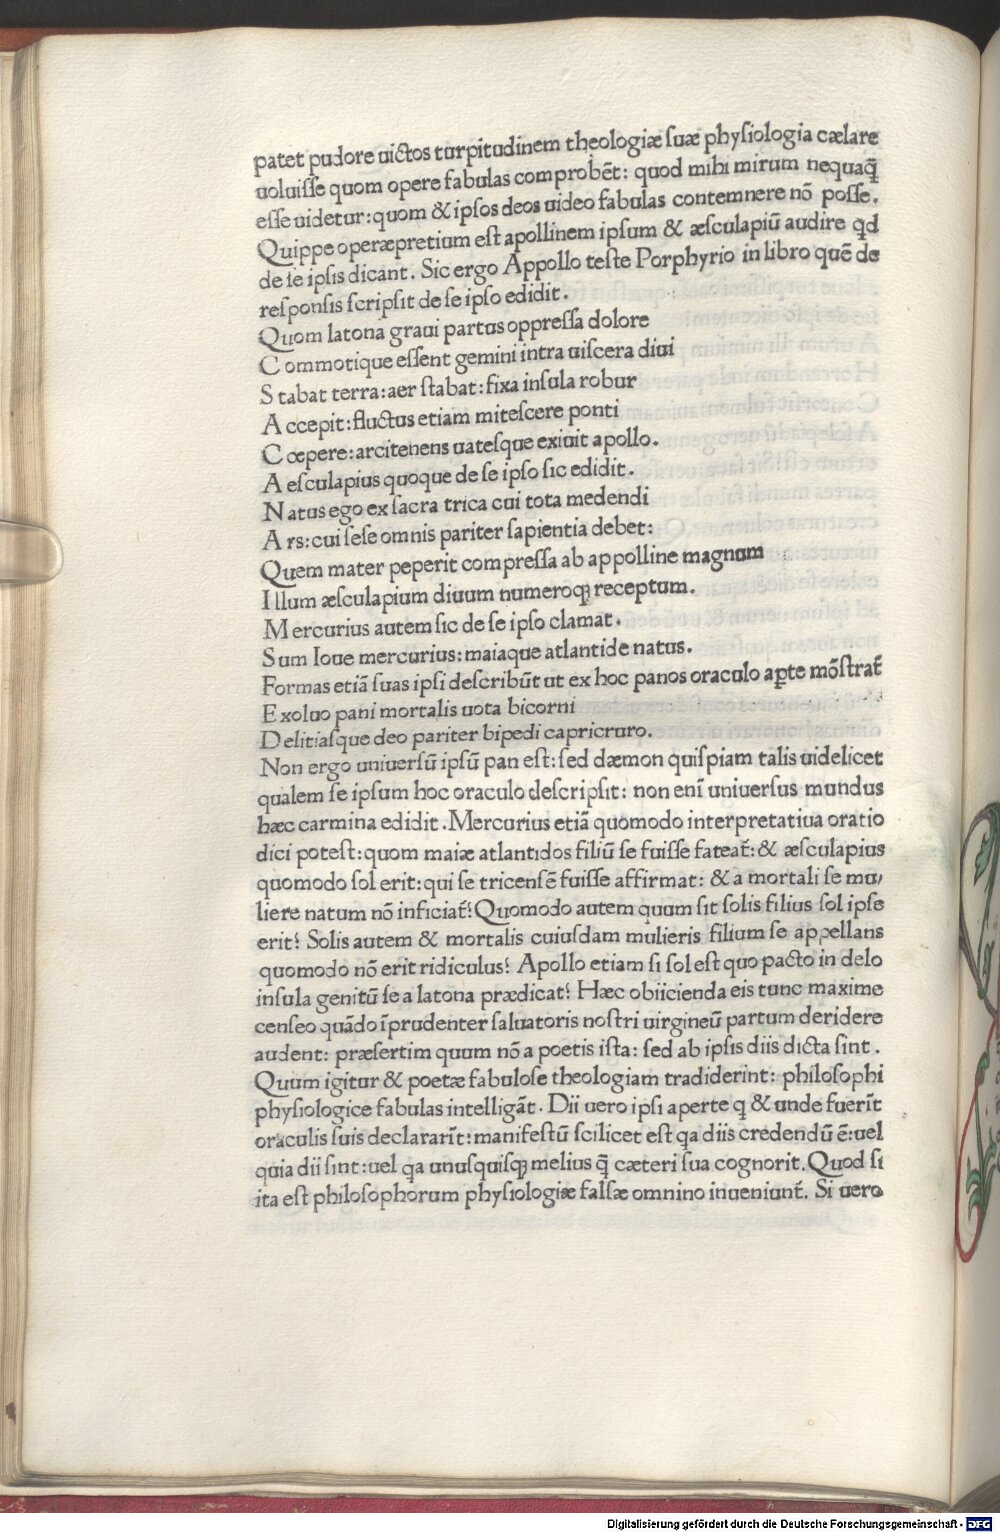 patet pudore uictos turpitudinem theologiæ suæ physiologia cælare
uoluisse quom opere fabulas comprobēt: quod mihi mirum nequaq̄
esse uidetur: quom & ipsos deos uideo fabulas contemnere nō posse.
Quippe operæpretium est apollinem ipsum & æsculapiū audire qd
de se ipsis dicant. Sic ergo Appollo teste Porphyrio in libro quē de
responsis scripsit de se ipso edidit.
Quom latona graui partus oppressa dolore
Commotique essent gemini intra uiscera diui
Stabat terra: aer stabat: fixa insula robur
Accepit: fluctus etiam mitescere ponti
Cœpere: arcitenens uatesque exiuit apollo.
Aesculapius quoque de se ipso sic edidit.
Natus ego ex sacra trica cui tota medendi
Ars: cui sese omnis pariter sapientia debet:
Quem mater peperit compressa ab appolline magnum
Illum æsculapium diuum numeroqꝫ receptum.
Mercurius autem sic de se ipso clamat.
Sum Ioue mercurius: maiaque atlantide natus.
Formas etiā suas ipsi describūt ut ex hoc panos oraculo aꝑte mōstrat᷑
Exoluo pani mortalis uota bicorni
Delitiasque deo pariter bipedi capricruro.
Non ergo uniuersū ipsū pan est: sed dæmon quispiam talis uidelicet
qualem se ipsum hoc oraculo descripsit: non enī uniuersus mundus
hæc carmina edidit. Mercurius etiā quomodo interpretatiua oratio
dici potest: quom maiæ atlantidos filiū se fuisse fateat᷑: & æsculapius
quomodo sol erit: qui se tricensē fuisse affirmat: & a mortali se mu/
liere natum nō inficiat᷑? Quomodo autem quum sit solis filius sol ipse
erit? Solis autem & mortalis cuiusdam mulieris filium se appellans
quomodo nō erit ridiculus? Apollo etiam si sol est quo pacto in delo
insula genitū se a latona prædicat? Hæc obiicienda eis tunc maxime
censeo quādo īprudenter saluatoris nostri uirgineū partum deridere
audent: præsertim quum nō a poetis ista: sed ab ipsis diis dicta sint.
Quum igitur & poetæ fabulose theologiam tradiderint: philosophi
physiologice fabulas intelligāt. Dii uero ipsi aperte q & unde fuerīt
oraculis suis declararīt: manifestū scilicet est qa diis credendū ē: uel
quia dii sint: uel qa unusquisqꝫ melius q̄ cæteri sua cognorit. Quod si
ita est philosophorum physiologiæ falsæ omnino inueniunt᷑. Si uero
Digitalisierung gefördert durch die Deutsche Forschungsgemeinschaft - DFG